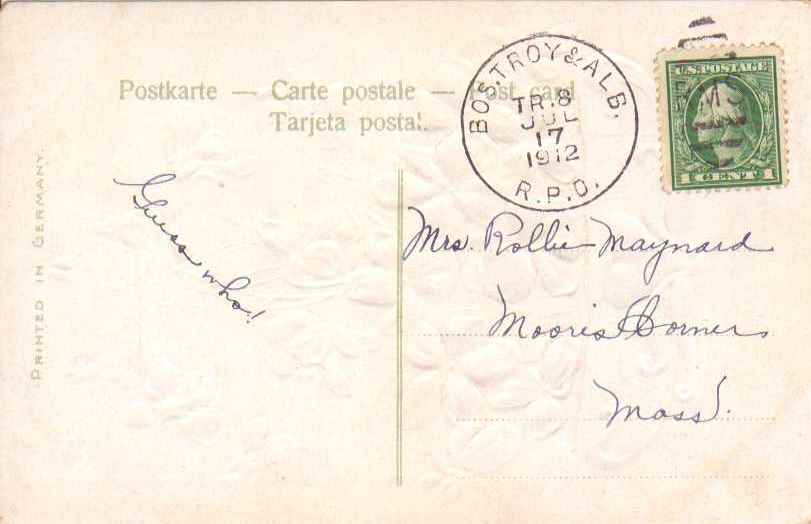 Postkarte — Carte postale — Post card
Tarjeta postal.
BOS. TROY & ALB.
TR. 8
JUL
17
1912
R.P.O.
U.S. POSTAGE
RMS
1 CENT 1
PRINTED IN GERMANY.
Guess who!
Mrs. Rollie Maynard
Moores Corner
Mass.